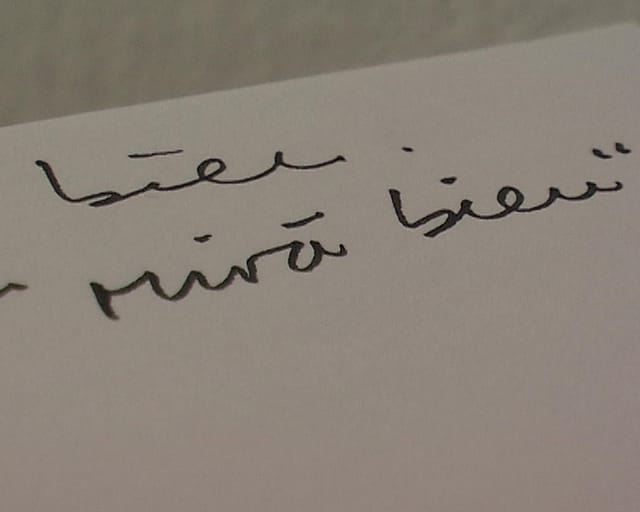 bien
mirá bien"